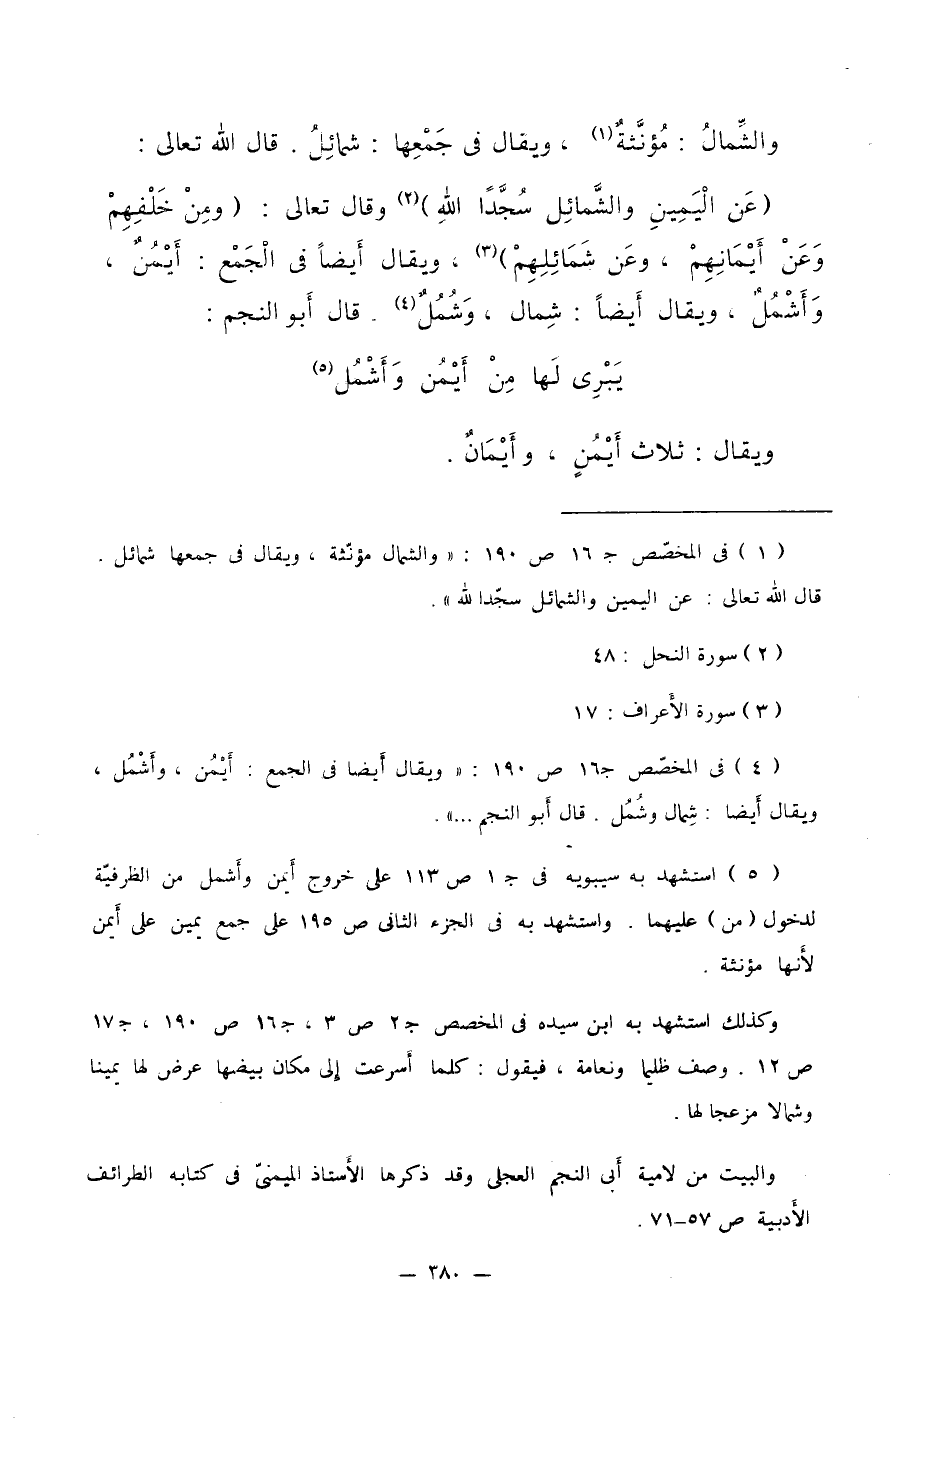 والشِّمالُ : مُؤنَّثةٌ(١) ، ويقال فى جَمْعِها : شمائِلُ . قال الله تعالى :
( عَن الْيَمِينِ والشَّمائِل سُجَّدًا اللهِ )(٢) وقال تعالى : ( ومِنْ خَلْفِهِمْ
وَعَنْ أَيْمَانِهِمْ ، وعَن شَمَائِلِهِمْ )(٣) ، ويقال أيضاً فى الْجَمْع : أَيْمُنٌ ،
وَأَشْمُلٌ ، ويقال أيضاً : شِمال ، وَشُمُلٌ(٤) . قال أبو النجم :
يَبْرِى لَها مِنْ أَيْمُن وَأَشْمُل(٥)
ويقال : ثلاث أَيْمُنٍ ، وأَيْمَانٌ .
( ١ ) فى المخصّص جـ ١٦ ص ١٩٠ : « والشمال مؤنّثة ، ويقال فى جمعها شمائل .
قال الله تعالى : عن اليمين والشمائل سجّدا لله » .
( ٢ ) سورة النحل : ٤٨
( ٣ ) سورة الأعراف : ١٧
( ٤ ) فى المخصّص جـ١٦ ص ١٩٠ : « ويقال أيضا فى الجمع : أَيْمُن ، وأَشْمُل ،
ويقال أيضا : شِمال وشُمُل . قال أبو النجم ...» .
( ٥ ) استشهد به سيبويه فى جـ ١ ص ١١٣ على خروج أيمن وأشمل من الظرفيّة
لدخول ( من ) عليهما . واستشهد به فى الجزء الثانى ص ١٩٥ على جمع يمين على أيمن
لأنها مؤنثة .
وكذلك استشهد به ابن سيده فى المخصص جـ٢ ص ٣ ، جـ١٦ ص ١٩٠ ، جـ١٧
ص ١٢ . وصف ظليما ونعامة ، فيقول : كلما أسرعت إلى مكان بيضها عرض لها يمينا
وشمالا مزعجا لها .
والبيت من لامية أبى النجم العجلى وقد ذكرها الأستاذ الميمنىّ فى كتابه الطرائف
الأدبية ص ٥٧–٧١ .
— ٣٨٠ —